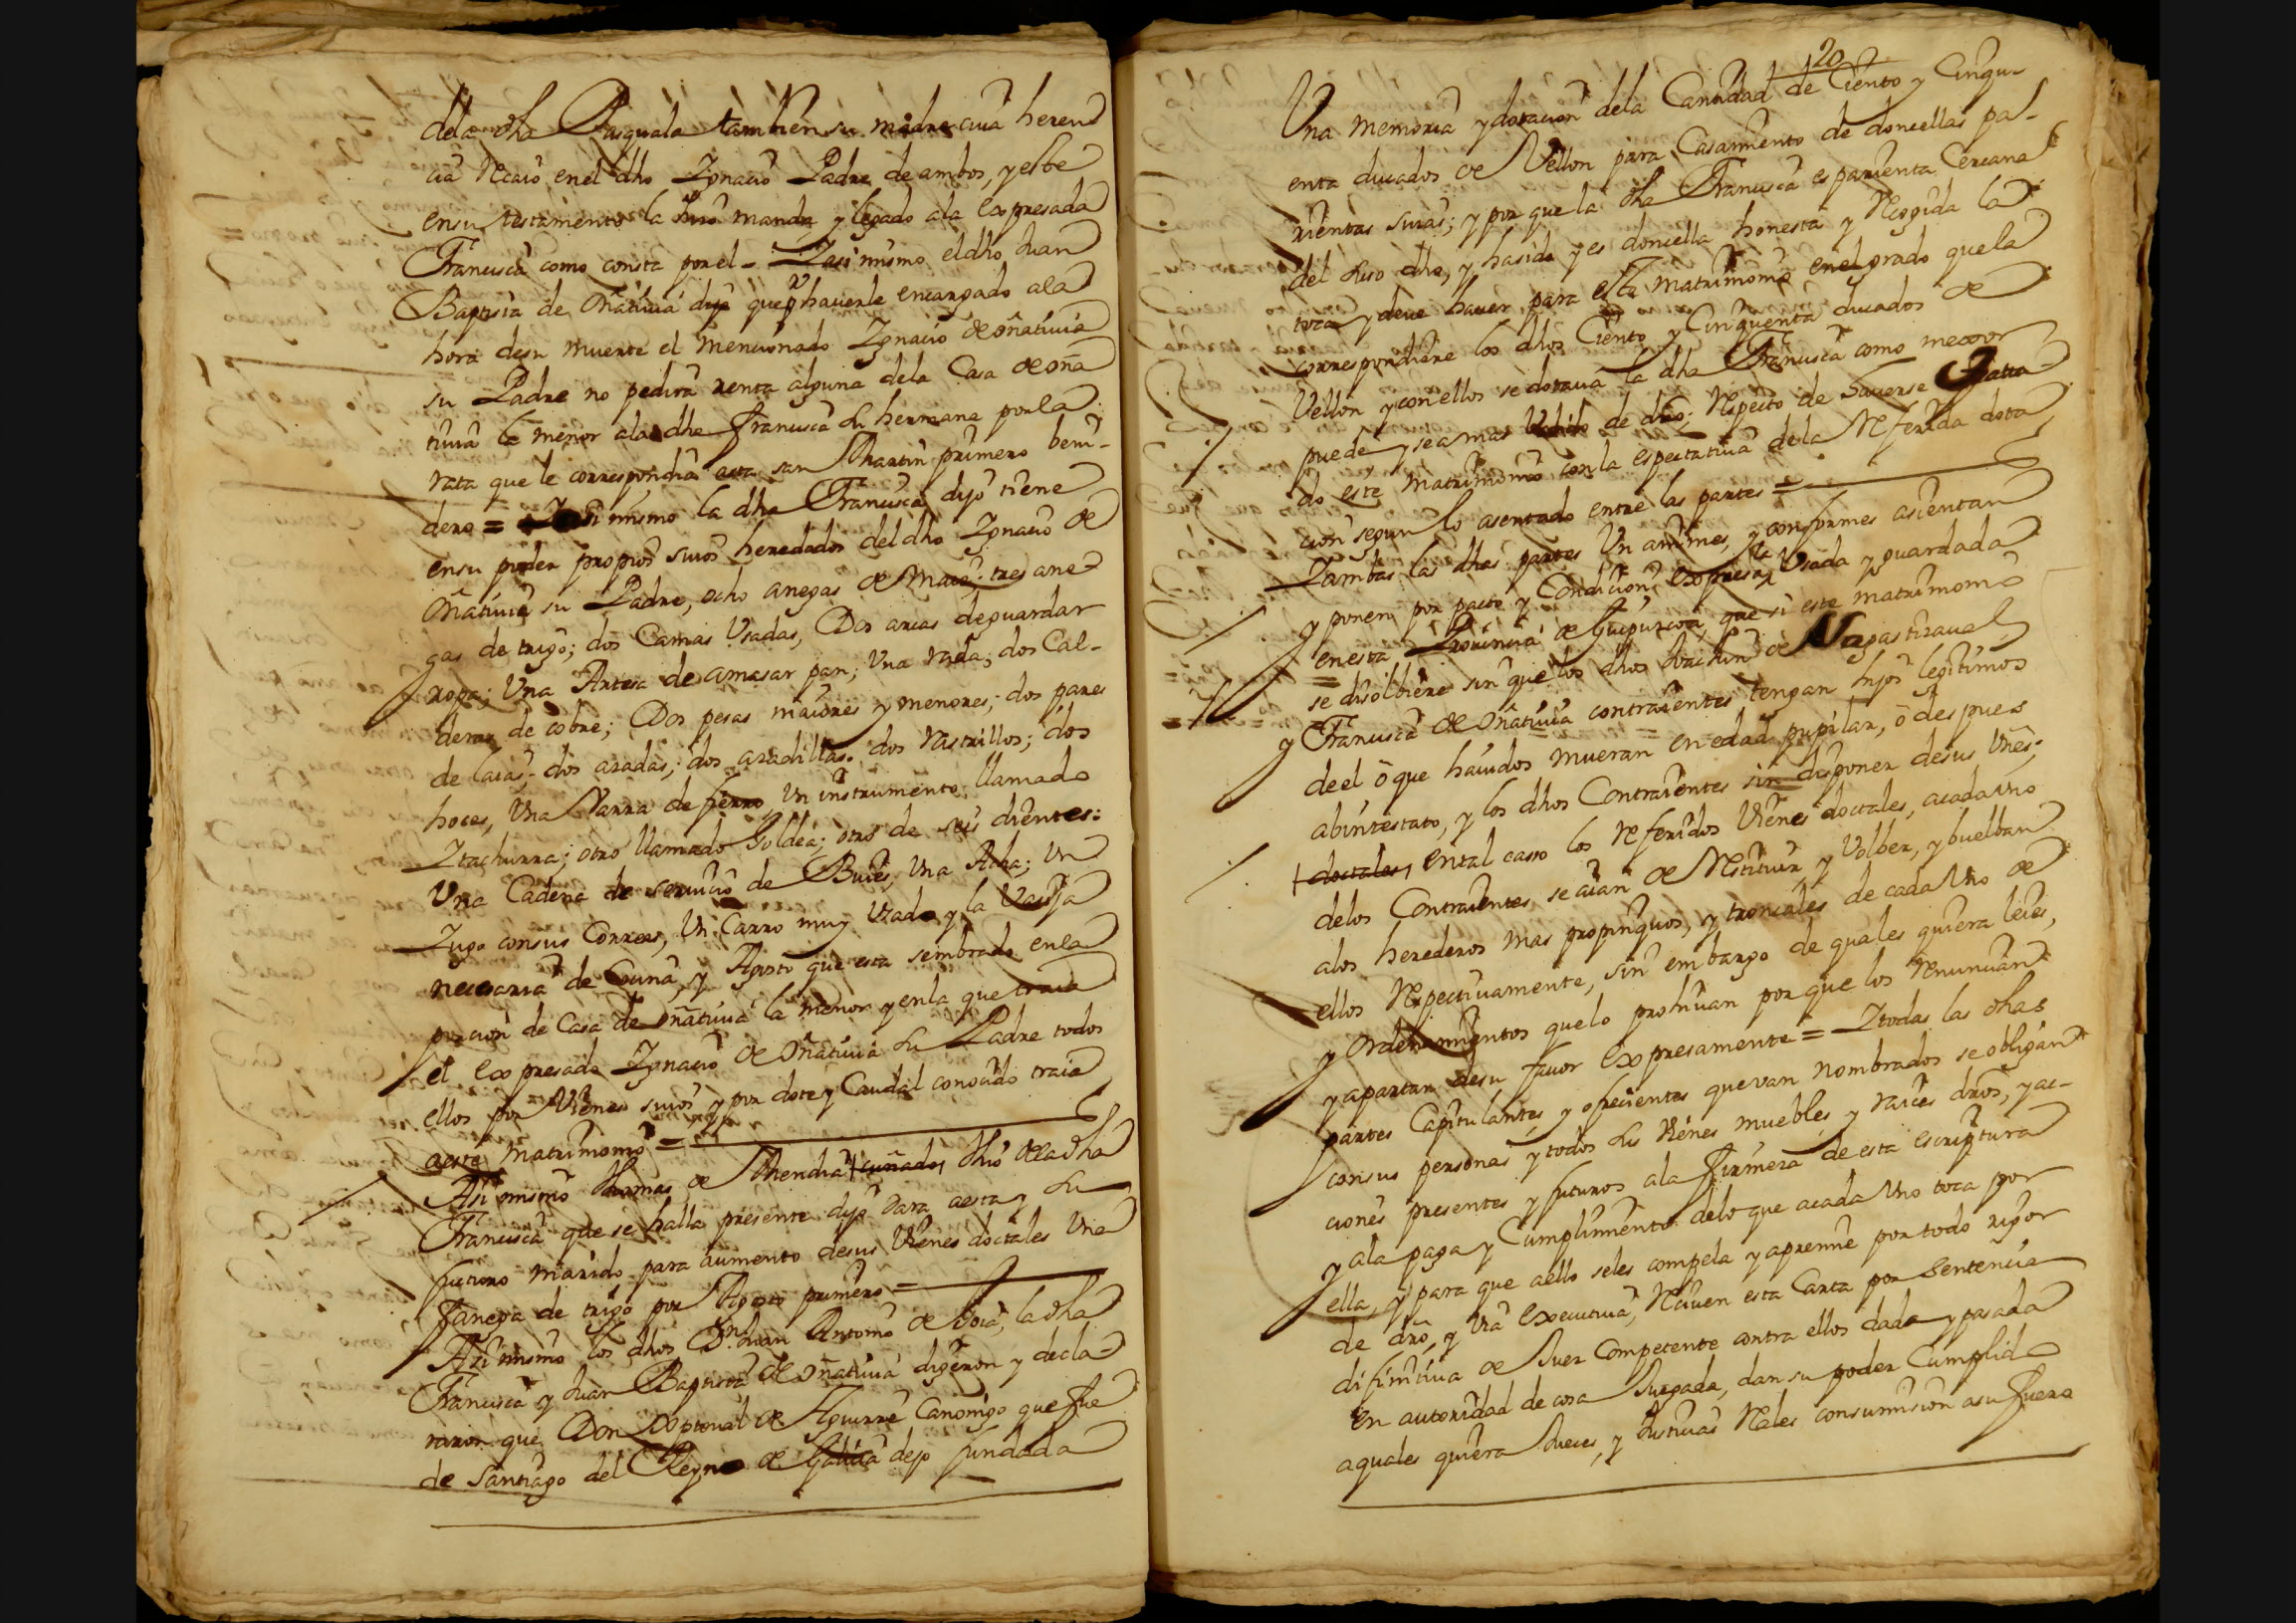 dela dha Pasquala tambien su madre cuia heren
cia recaio enel dho Ygnacio Padre de ambos, y este
ensu testamento la hizo manda y legado ala expresada
Francisca como consta por el = Yasi mismo el dho Juan
Baptista de Oñativia dijo que pr haverle encargado ala
hora desu muerte el mencionado Ygnacio de oñativia
su Padre no pedira renta alguna dela Casa de oña
tivia la menor ala dha Francisca su hermana por la
rata que le correspondia asta san Martin primero beni-
dero = Yasi mismo la dha Francisca dijo tiene
ensu poder propios suios heredados del dho Ygnacio de
Oñativia su Padre, ocho anegas de Maiz; tres ane
gas de trigo; dos Camas Vsadas, Dos arcas deguardar
ropa; Una Artesa de amasar pan; Una rada; dos Cal-
deras de cobre; Dos pesas maiores y menores; dos pares
de laias; dos azadas; dos azadillas; dos rastrillos; dos
hoces, Una Varra de fierro, Un instrumento llamado
Ytachurra; otro llamado Goldea; otro de seis dientes:
Una Cadena de servicio de Buies, Una Acha; Un
Yugo consus Correas, Un Carro muy Vzado y la Vasija
necesaria de Cocina, y Agosto que esta sembrado enla
porcion de Casa de oñativia la menor y enla que traia
el expresado Ygnacio de oñativia su Padre todos
ellos por Vienes suios y por dote y Caudal conocido traia
aeste matrimonio =
Asi mismo Thomas de Mendia cuñado dho dela dha
Francisca que se halla presente dijo dara aesta y su
futuro marido para aumento desus Vienes doctales Una
fanega de trigo por Agosto primero =
Asi mismo los dhos Dn. Juan Antonio de Soia, la dha
Francisca y Juan Baptista de Oñativia digeron y decla
raron que Don Xptoval de Aguirre Canonigo que fue
de Santiago del Reyno de Galicia dejo fundada
20
Una memoria y dotacion dela Cantidad de Ciento y Cinqu-
enta ducados de Vellon para Casamiento de doncellas pa-
rientas suias; y por que la dha Francisca es parienta Cercana
del suso dho, y ha sido y es doncella honesta y recogida la
toca y deve haver para este matrimonio enel grado que la
correspondiere los dhos Ciento y Cinquenta ducados de
Vellon y con ellos se dotava la dha Francisca como mexor
puede y sea mas Valido de dro; respecto de haverse tratta
do este matrimonio con la espectativa dela referida dota
cion segun lo asentado entre las partes =
Yambas las dhas partes Un animes, y conformes asientan
y ponen por pacto y Condicion expresa Vsada y guardada
enesta Provincia de Guipuzcoa, que si este matrimonio
se disolbiere sin que los dhos Joachin de Nagastizaval
y Francisca de Oñativia contraientes tengan hijos legitimos
de el ô que havidos mueran en edad pupilar, ô despues
abintestato, y los dhos Contraientes sin disponer desus Vnes;
doctales, ental caso los referidos Vienes doctales, acada Uno
delos Contraientes se aian de restituir y Volber, y buelban
alos herederos mas propinquos, y troncales de cada Uno de
ellos respectivamente, sin embargo de quales quiera leies,
y ordenamientos quelo prohivan por que los renuncian
y apartan desu favor expresamente = Ytodas las dhas
partes Capitulantes y ofrecientes que van nombrados se obligan
consus personas y todos sus Vienes muebles y raices dros, y ac-
ciones presentes y futuros ala firmeza de esta escriptura
y ala paga y Cumplimiento delo que acada Uno toca por
ella, y para que aello seles compela y apremie por todo rigor
de dro, y Via executiva, reciven esta Carta por sentencia
difinitiva de Juez Competente contra ellos dada y pasada
en autoridad de cosa Juzgada, dan su poder Cumplido
aquales quiera Jueces, y Justicias reales consumision asu fuero